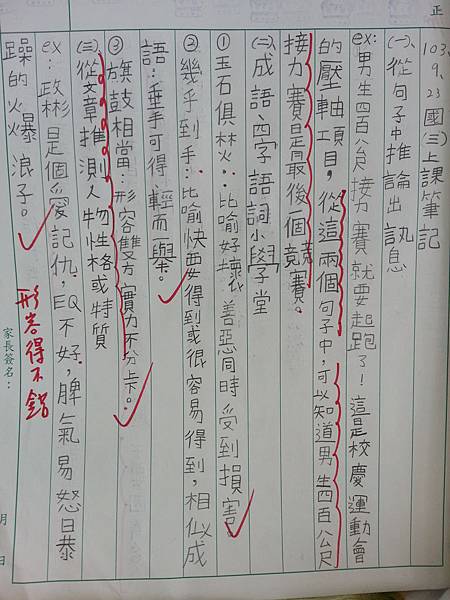 正
103.9.23國(三)上課筆記
(一)、從句子中推論出訊息
ex:男生四百公尺接力賽就要起跑了!這是校慶運動會
的壓軸項目,從這兩個句子中,可以知道男生四百公尺
接力賽是最後一個競賽。
(二)、成語、四字語詞小學堂
①玉石俱焚:比喻好壞、善惡同時受到損害。
②幾乎到手:比喻快要得到或很容易得到,相似成
語:垂手可得、輕而一舉。
③旗鼓相當:形容雙方實力不分上下。
(三)從文章推測人物性格或特質
ex:政彬是個愛記仇,EQ不好,脾氣易怒日恭
躁的火爆浪子。
形容得不錯
家長簽名:
月
日